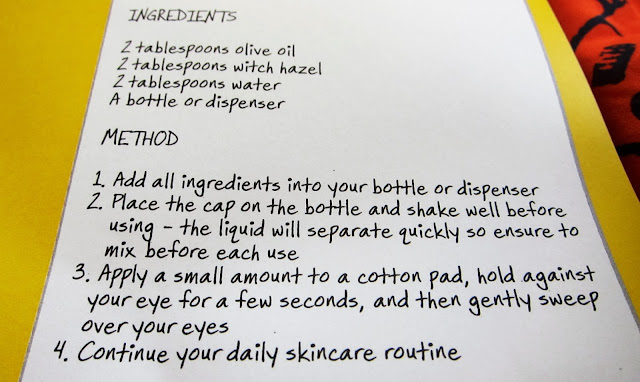 INGREDIENTS
2 tablespoons olive oil
2 tablespoons witch hazel
2 tablespoons water
A bottle or dispenser
METHOD
1. Add all ingredients into your bottle or dispenser
2. Place the cap on the bottle and shake well before
using - the liquid will separate quickly so ensure to
mix before each use
3. Apply a small amount to a cotton pad, hold against
your eye for a few seconds, and then gently sweep
over your eyes
4. Continue your daily skincare routine